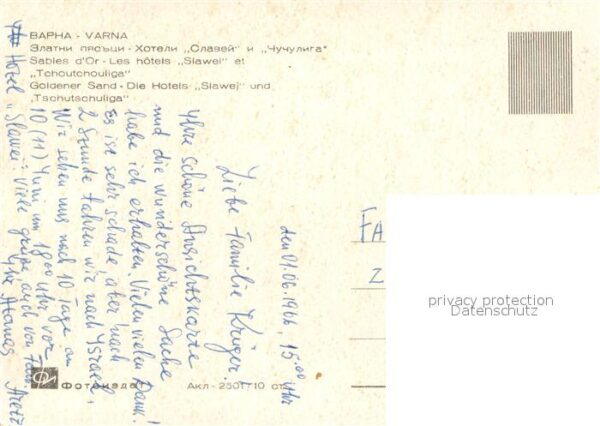 ВАРНА - VARNA
Златни пясъци - Хотели „Славей" и „Чучулига"
Sables d'Or - Les hôtels „Slawei" et
„Tchoutchouliga"
Goldener Sand - Die Hotels „Slawej" und
„Tschutschuliga"
den 01.06.1966, 15.00 Uhr
Liebe Familie Krüger!
Ihre schöne Ansichtskarte
und die wunderschöne Sache
habe ich erhalten. Vielen vielen Dank!
Es ist sehr schade, aber nach
2 Stunde fahren wir nach Israel.
Wir sehen uns nach 10 Tage am
10 (11) Juni um 18.00 Uhr vor
Hotel „Slawei". Viele grüße auch von Fam.
Ihr Atanas
FA
Z
privacy protection
Datenschutz
Фотоиздат
Акл - 2501/10 ст